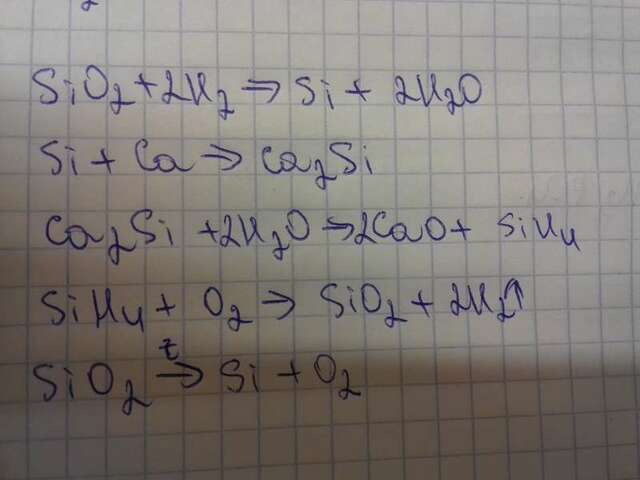 SiO₂ + 2H₂ → Si + 2H₂O
Si + Ca → Ca₂Si
Ca₂Si + 2H₂O → 2CaO + SiH₄
SiH₄ + O₂ → SiO₂ + 2H₂↑
SiO₂ t→ Si + O₂